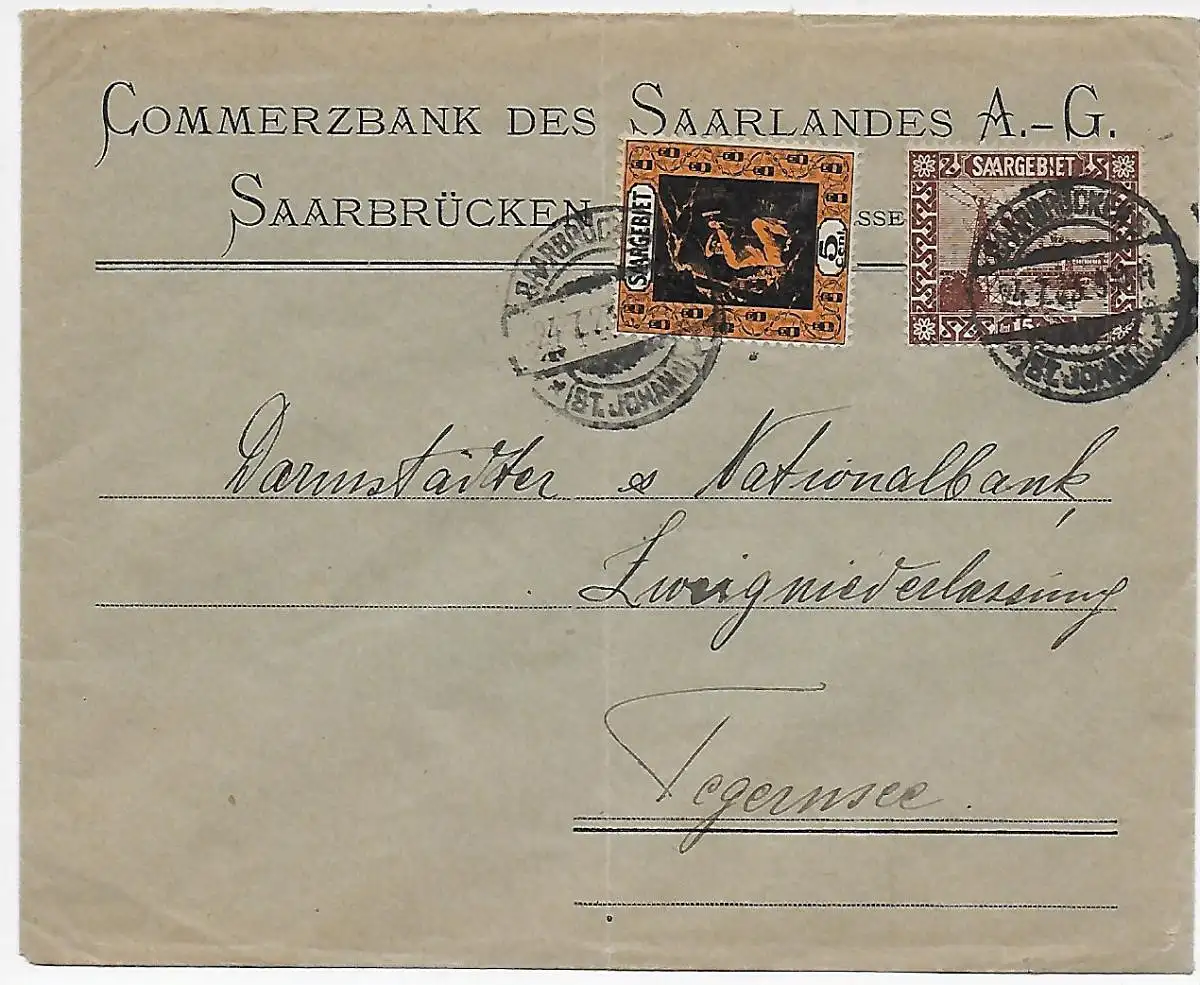 COMMERZBANK DES SAARLANDES A.-G.
SAARBRÜCKEN
SSE
SAARGEBIET
5
SAARGEBIET
15
SAARBRÜCKEN
(ST. JOHANN)
SAARBRÜCKEN
(ST. JOHANN)
Darmstädter & Nationalbank,
Zweigniederlassung
Tegernsee.